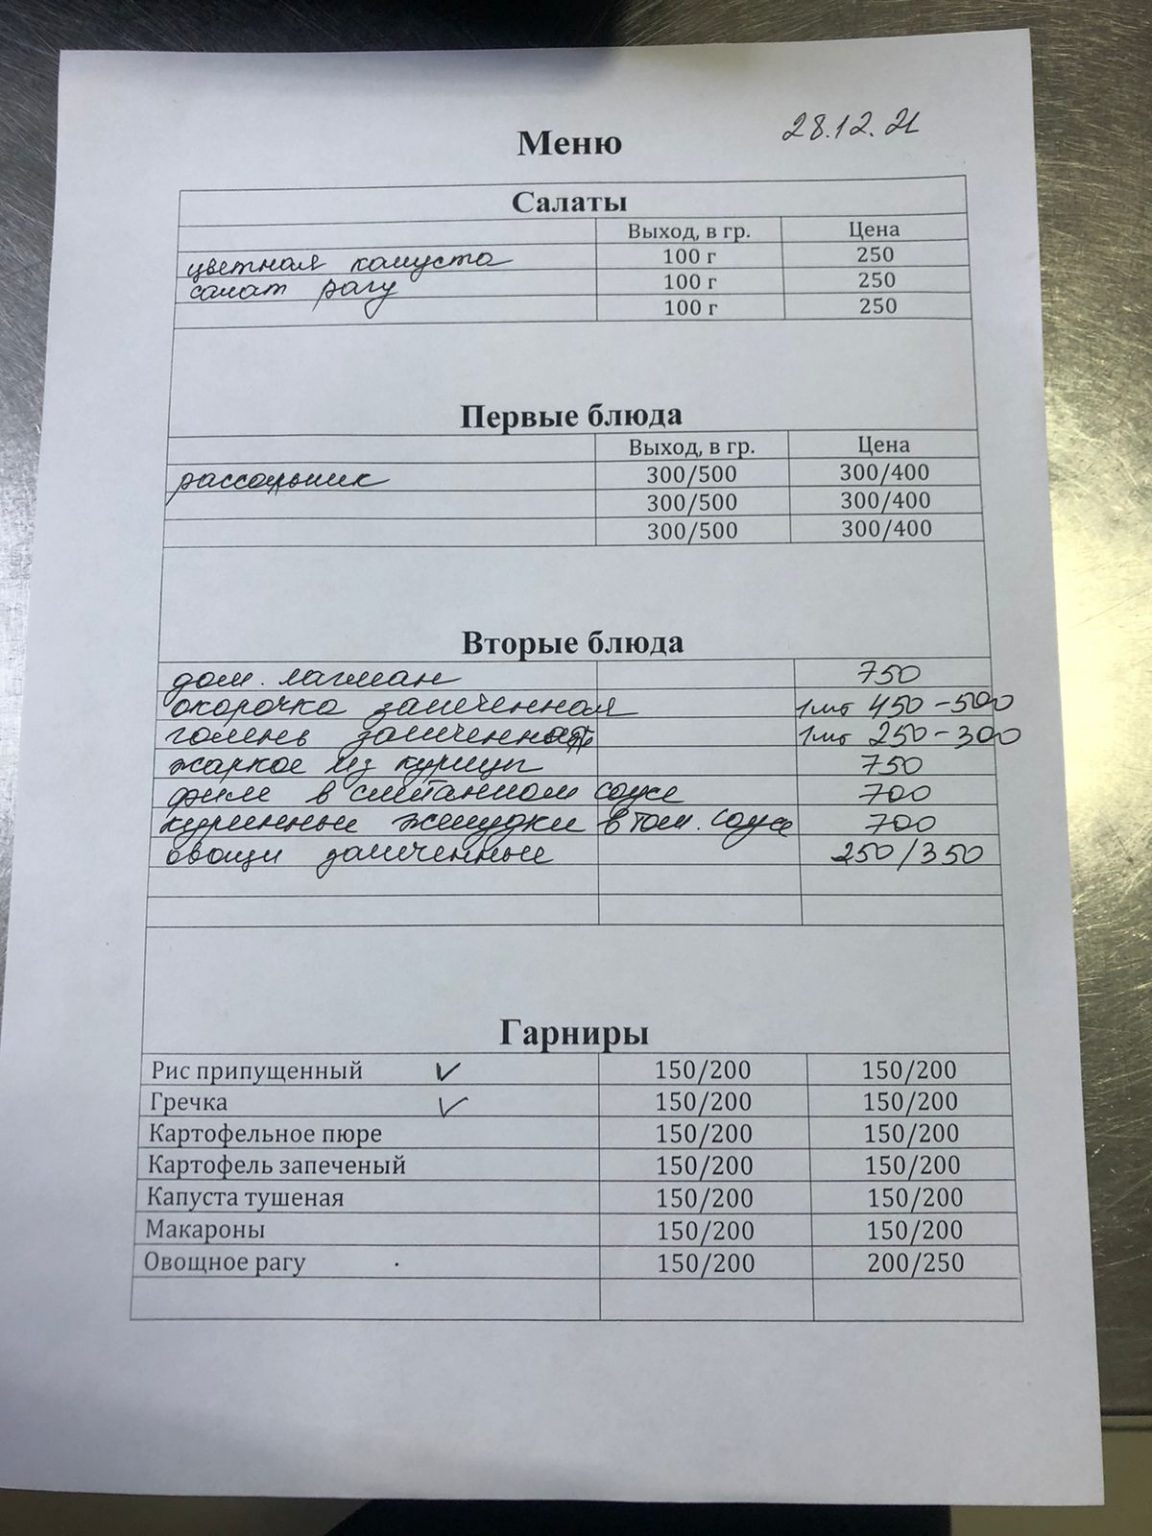 Меню 28.12.21
Салаты
Выход, в гр. Цена
цветная капуста 100 г 250
салат рагу 100 г 250
100 г 250
Первые блюда
Выход, в гр. Цена
рассольник 300/500 300/400
300/500 300/400
300/500 300/400
Вторые блюда
дом. лагман 750
окорочка запеченная 1шт 450-500
голень запеченная 1шт 250-300
жаркое из курицы 750
филе в сметанном соусе 700
куринные желудки в том. соусе 700
овощи запеченные 250/350
Гарниры
Рис припущенный ✓ 150/200 150/200
Гречка ✓ 150/200 150/200
Картофельное пюре 150/200 150/200
Картофель запеченый 150/200 150/200
Капуста тушеная 150/200 150/200
Макароны 150/200 150/200
Овощное рагу 150/200 200/250